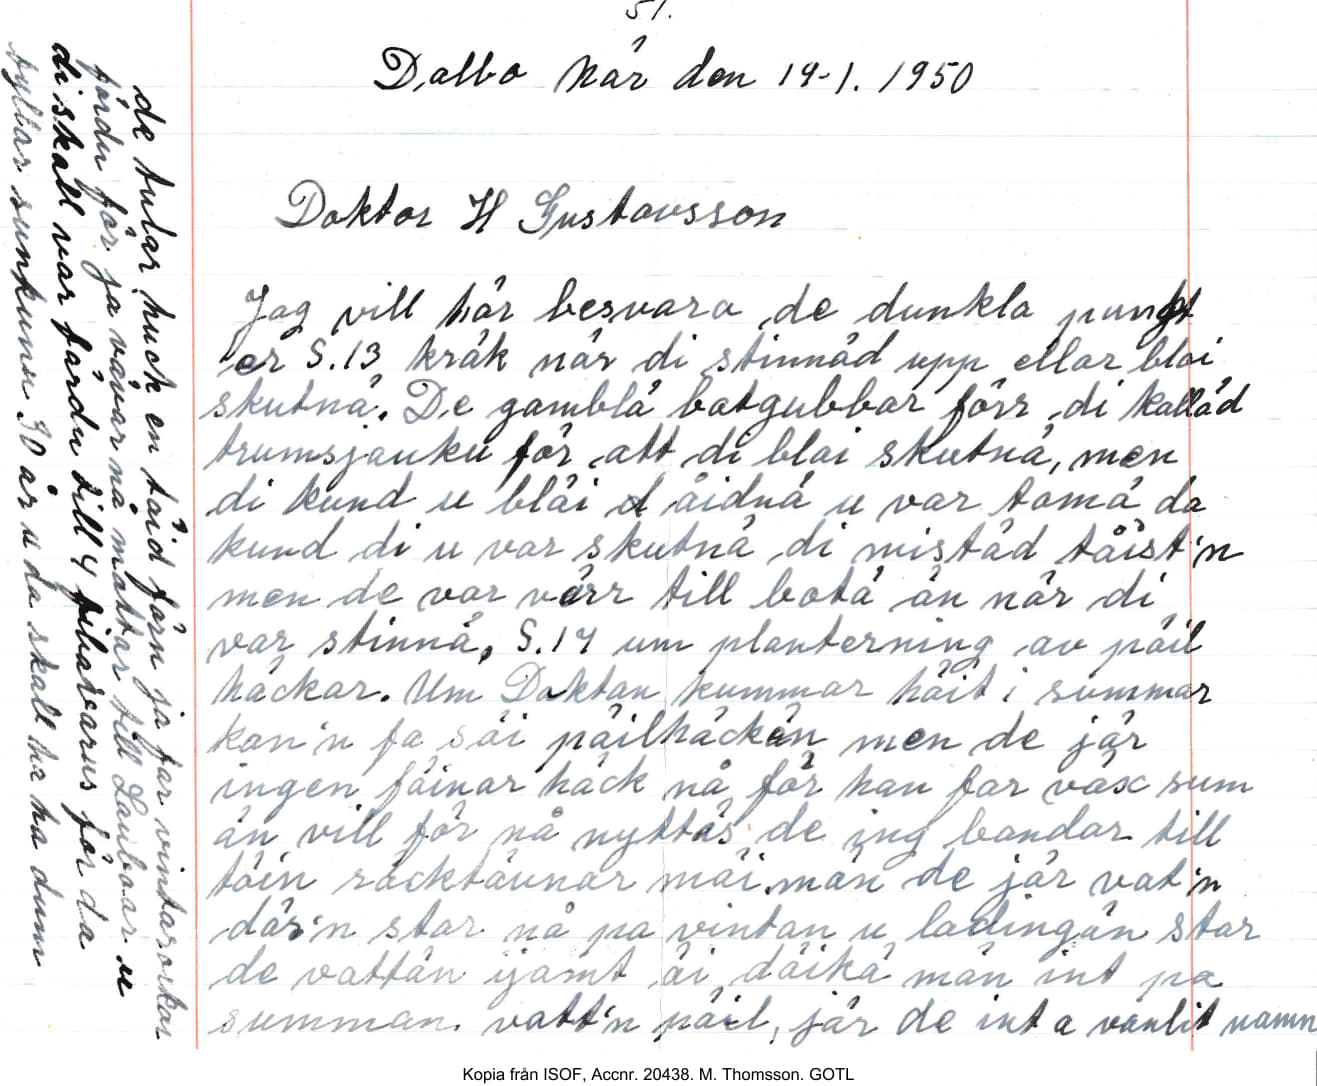 51.
Dalbo När den 14-1. 1950
Doktor H Gustavsson
Jag vill här besvara de dunkla punkt
er S.13 kräk när di stinnäd upp ellar blai
skutnä. De gamblä batgubbar förr di kalläd
trumsjauku för att di blai skutnä, men
di kund u bläi äidnä u var tomä da
kund di u var skutnä di mistäd täist'n
men de var värr till botä än när di
var stinnä, S.14 um planterning av päil
häckar. Um Doktan kummar häit i summar
kan'n fa säi päilhäckän men de jär
ingen fäinar häck nå för han far väx sum
än vill för nå nyttäs de ing bandar till
täin räcktäunar mäi män de jär vat'n
där'n star nå pa vintan u ladingän star
de vattän jämt äi däikä män int pa
summan. vatt'n päil, jär de int a vanlit namn
de tular huck en täid färn ja far vintarsockar
färdu för ja vävar nå mattar till Laubar u
di skall var färdu till 4 fibarvarus för da
fyllar sunkunu 90 år u da skall ha ha dum
Kopia från ISOF, Accnr. 20438. M. Thomsson. GOTL